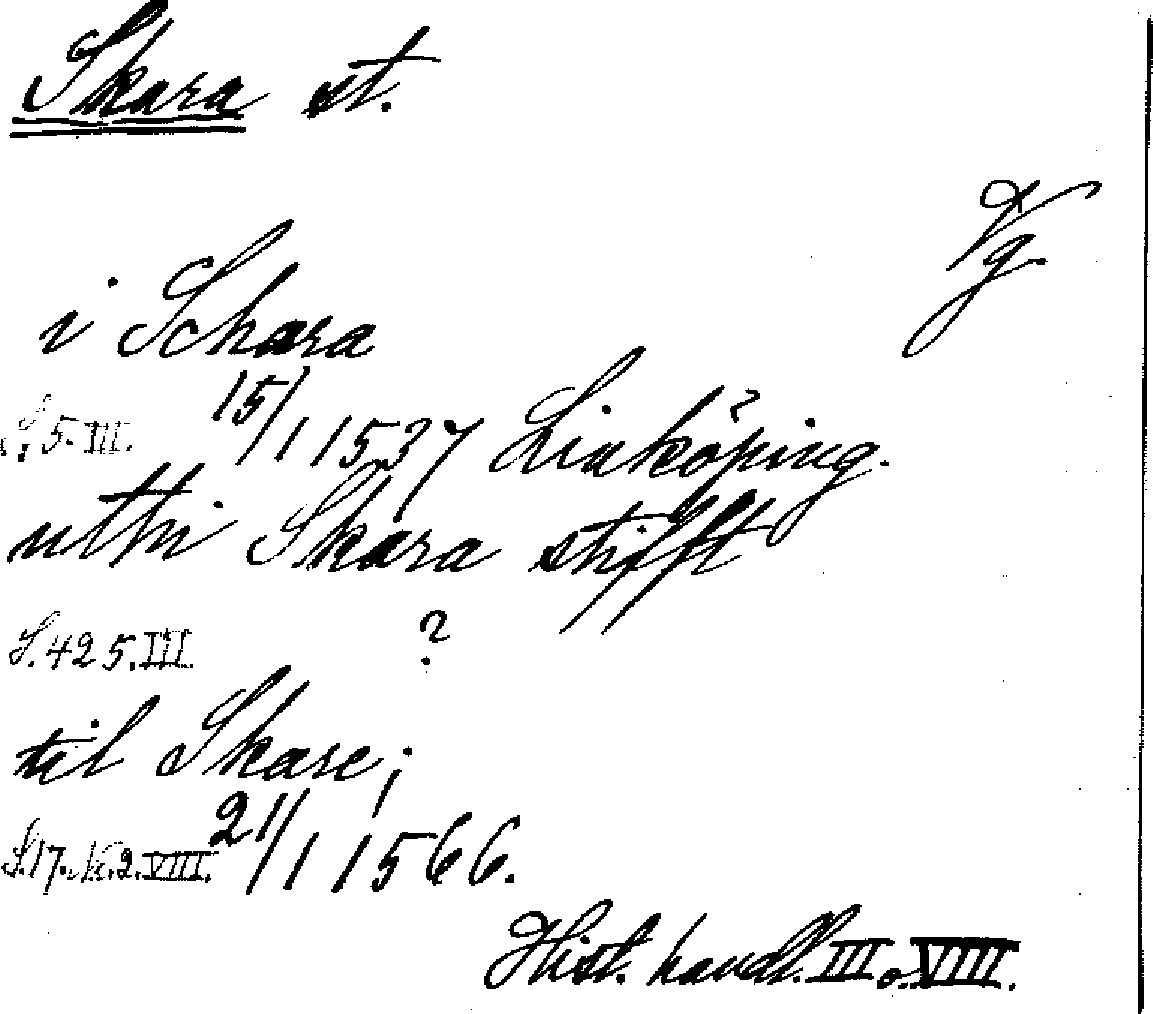 Skara st.
Vg
i Schara
S. 5. III. 15/1 1537 Linköping.
utthi Skara stifft
S. 425. III. ?
til Skare;
S. 17. N:o 2. VIII. 21/1 1566.
Hist. handl. III o. VIII.